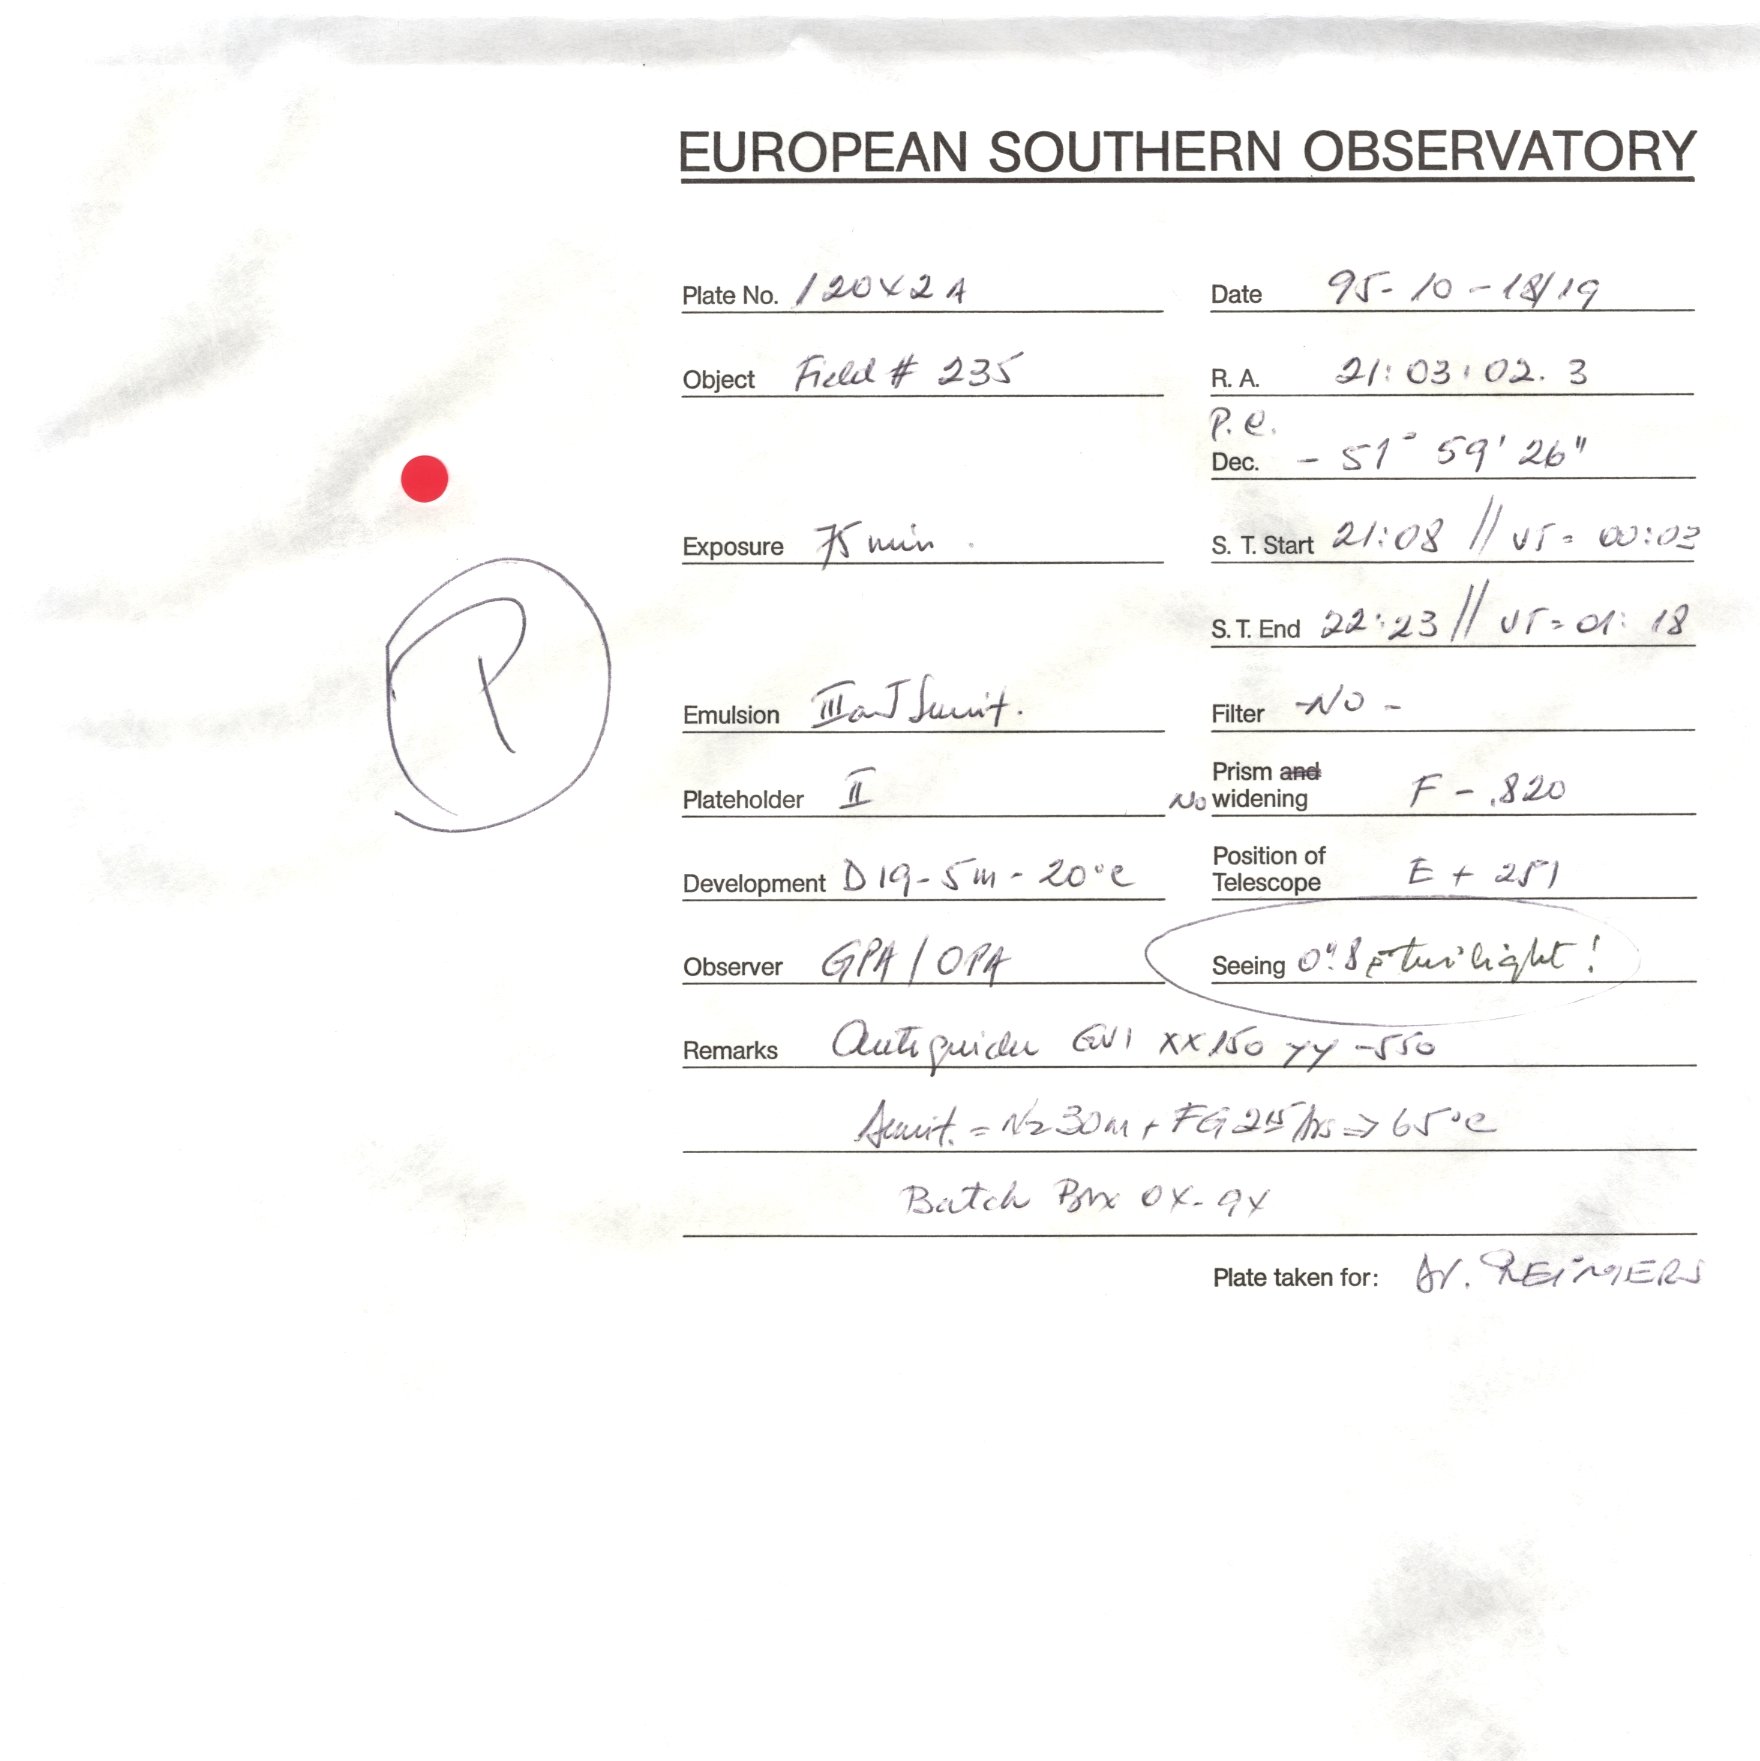 EUROPEAN SOUTHERN OBSERVATORY
Plate No. 12042 A
Date 95-10-18/19
Object Field # 235
R. A. 21:03:02.3
P.e.
Dec. - 51° 59' 26"
Exposure 75 min.
S. T. Start 21:08 // UT = 00:03
S. T. End 22:23 // UT = 01:18
P
Emulsion IIIaJ
Filter -NO-
Plateholder II
Prism and
No widening F - .820
Development D19-5m-20°c
Position of
Telescope E + 251
Observer GPA/OPA
Seeing 0".8 twilight!
Remarks xx 150 yy -550
= N2 30m + FG 2 hrs => 65°c
Batch Box
Plate taken for: Dr. REIMERS